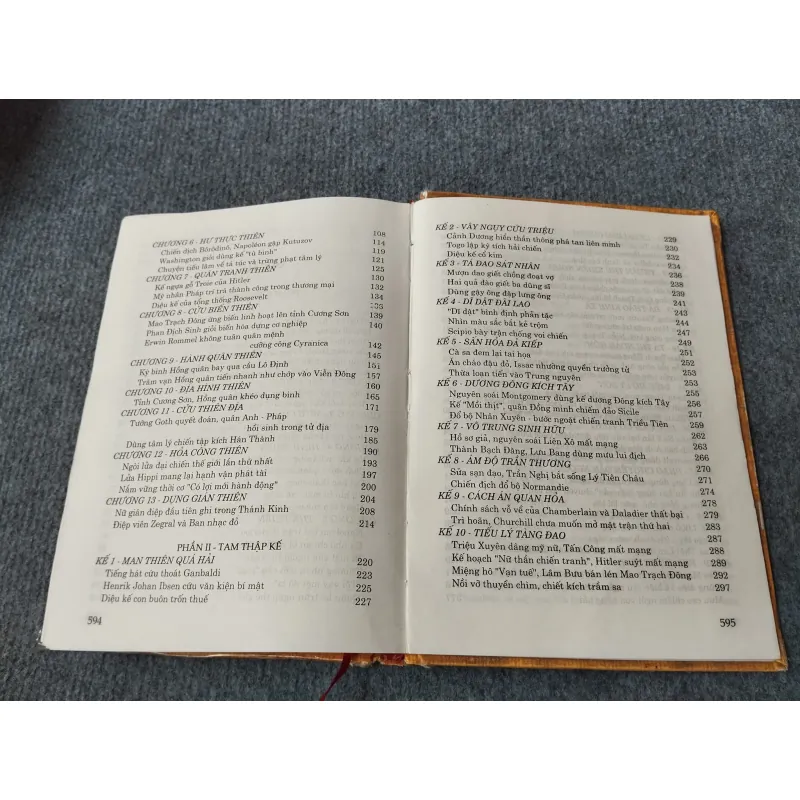 CHƯƠNG 6 - HƯ THỰC THIÊN 108
Chiến dịch Bôrôdinô, Napoléon gặp Kutuzov 114
Washington giỏi dùng kế "tù binh" 119
Chuyện tiếu lâm về tá túc và trừng phạt tâm lý 121
CHƯƠNG 7 - QUÂN TRANH THIÊN 125
Kế ngựa gỗ Troie của Hitler 130
Mỹ nhân Pháp trí trá thành công trong thương mại 132
Diệu kế của tổng thống Roosevelt 134
CHƯƠNG 8 - CỬU BIẾN THIÊN 135
Mao Trạch Đông ứng biến linh hoạt lên tỉnh Cương Sơn 139
Phan Địch Sinh giỏi biến hóa dựng cơ nghiệp 140
Erwin Rommel không tuân quân mệnh
cưỡng công Cyranica 142
CHƯƠNG 9 - HÀNH QUÂN THIÊN 145
Kỳ binh Hồng quân bay qua cầu Lô Định 151
Trăm vạn Hồng quân tiến nhanh như chớp vào Viễn Đông 157
CHƯƠNG 10 - ĐỊA HÌNH THIÊN 160
Tỉnh Cương Sơn, Hồng quân khéo dụng binh 165
CHƯƠNG 11 - CỬU THIÊN ĐỊA 171
Tướng Goth quyết đoán, quân Anh - Pháp
hồi sinh trong tử địa 179
Dùng tâm lý chiến tập kích Hán Thành 185
CHƯƠNG 12 - HỎA CÔNG THIÊN 190
Ngòi lửa đại chiến thế giới lần thứ nhất 193
Lửa Hippi mang lại hạnh vận phát tài 197
Nắm vững thời cơ "Có lợi mới hành động" 200
CHƯƠNG 13 - DỤNG GIAN THIÊN 204
Nữ gián điệp đầu tiên ghi trong Thánh Kinh 208
Điệp viên Zegral và Ban nhạc đỏ 214
PHẦN II - TAM THẬP KẾ
KẾ 1 - MAN THIÊN QUÁ HẢI 220
Tiếng hát cứu thoát Ganbaldi 223
Henrik Johan Ibsen cứu văn kiện bí mật 225
Diệu kế con buôn trốn thuế 227
594
KẾ 2 - VÂY NGỤY CỨU TRIỆU 229
Cảnh Dương hiển thần thông phá tan liên minh 230
Togo lập kỳ tích hải chiến 232
Diệu kế cổ kim 234
KẾ 3 - TÁ ĐAO SÁT NHÂN 236
Mượn dao giết chồng đoạt vợ 238
Hai quả đào giết ba dũng sĩ 239
Dùng gậy ông đập lưng ông 241
KẾ 4 - DĨ DẬT ĐÃI LAO 243
"Dĩ dật" bình định phản tặc 244
Nhìn màu sắc bắt kẻ trộm 247
Scipio bày trận chống voi chiến 249
KẾ 5 - SẤN HỎA ĐẢ KIẾP 251
Cà sa đem lại tai họa 252
Ăn cháo đậu đỏ, Issac nhường quyền trưởng tử 253
Thừa loạn tiến vào Trung nguyên 253
KẾ 6 - DƯƠNG ĐÔNG KÍCH TÂY 255
Nguyên soái Montgomery dùng kế dương Đông kích Tây 256
Kế "Mồi thịt", quân Đồng minh chiếm đảo Sicile 257
Đổ bộ Nhân Xuyên - bước ngoặt chiến tranh Triều Tiên 259
KẾ 7 - VÔ TRUNG SINH HỮU 262
Hồ sơ giả, nguyên soái Liên Xô mất mạng 263
Thành Bạch Đăng, Lưu Bang dùng mưu lui địch 266
KẾ 8 - ÁM ĐỘ TRẦN THƯƠNG 270
Sửa sạn đạo, Trần Nghị bắt sống Lý Tiên Châu 271
Chiến dịch đổ bộ Normandie 274
KẾ 9 - CÁCH ÁN QUAN HỎA 278
Chính sách vỗ về của Chamberlain và Daladier thất bại 279
Trì hoãn, Churchill chưa muốn mở mặt trận thứ hai 283
KẾ 10 - TIẾU LÝ TÀNG ĐAO 287
Triệu Xuyên dâng mỹ nữ, Tấn Công mất mạng 288
Kế hoạch "Nữ thần chiến tranh", Hitler suýt mất mạng 289
Miệng hô "Vạn tuế", Lâm Bưu bán lén Mao Trạch Đông 292
Nổi vỡ thuyền chìm, chiết kích trầm sa 297
595